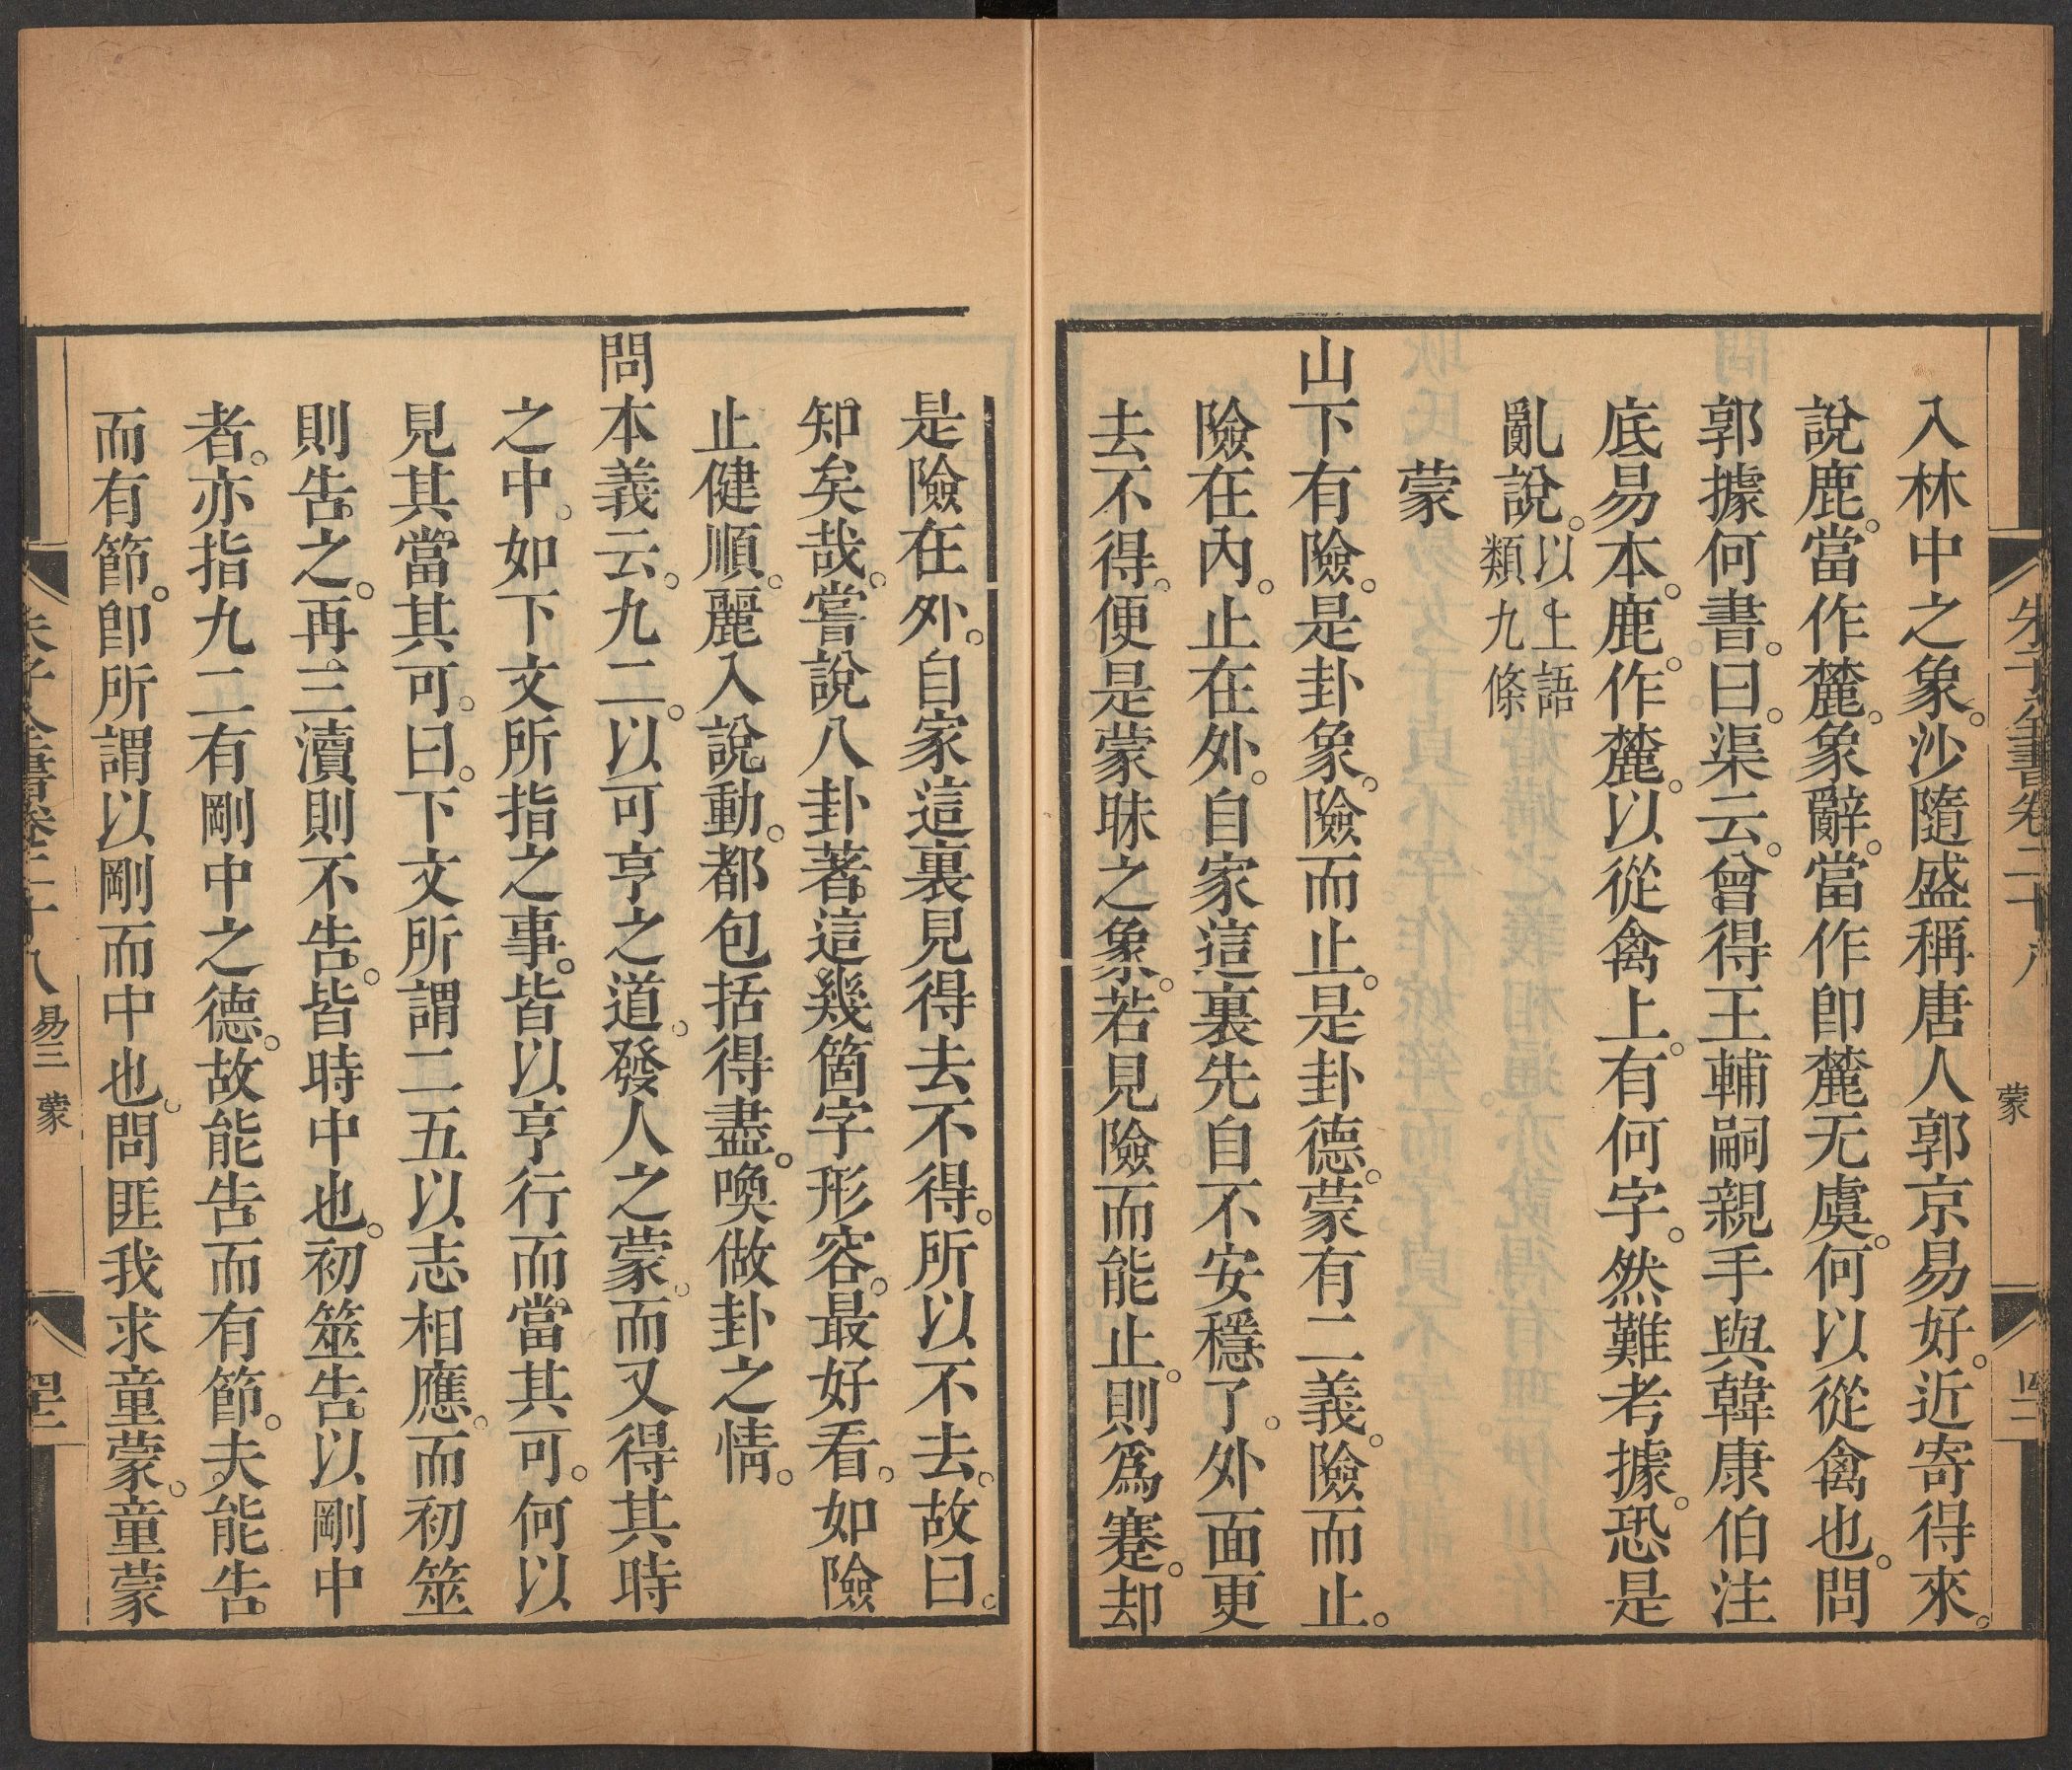 入林中之象。沙隨盛稱唐人郭京易好。近寄得來。
說鹿。當作麓。象辭。當作卽麓无虞。何以從禽也。問
郭據何書。曰。渠云。曾得王輔嗣親手與韓康伯注
底易本。鹿。作麓。以從禽上。有何字。然難考據。恐是
亂說。以上語類九條
蒙
山下有險。是卦象。險而止。是卦德。蒙有二義。險而止。
險在內。止在外。自家這裏先自不安穩了。外面更
去不得。便是蒙昧之象。若見險而能止。則爲蹇。却
是險在外。自家這裏見得去不得。所以不去。故曰。
知矣哉。嘗說八卦著這幾箇字形容。最好看。如險
止健順。麗入說動。都包括得盡。喚做卦之情。
問本義云。九二。以可亨之道。發人之蒙。而又得其時
之中。如下文所指之事。皆以亨行而當其可。何以
見其當其可。曰。下文所謂二五以志相應。而初筮
則告之。再三瀆則不告。皆時中也。初筮告以剛中
者。亦指九二有剛中之德。故能告而有節。夫能告
而有節。卽所謂以剛而中也。問匪我求童蒙。童蒙
朱子全書卷二十八 易三 蒙
蒙